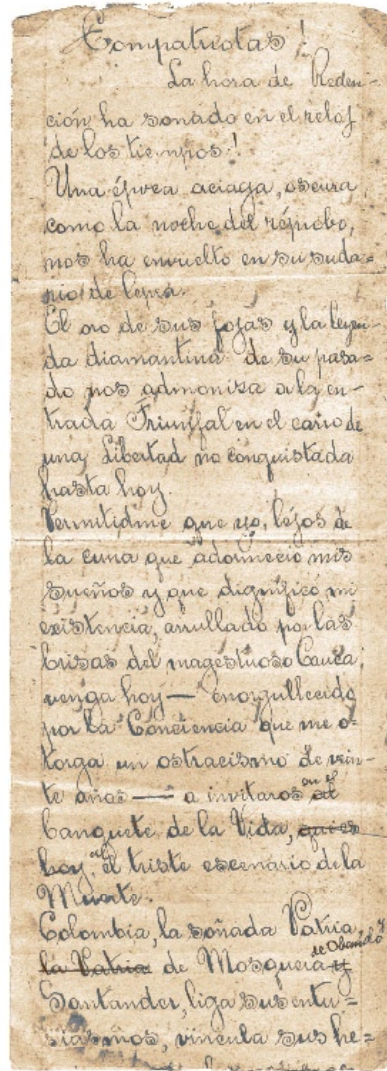 Compatriotas!
La hora de Reden-
ción ha sonado en el reloj
de los tiempos!
Una época aciaga, oscura
como la noche del réprobo,
nos ha envuelto en su suda=
rio de lepra.
El oro de sus fojas y la leyen-
da diamantina de su pasa=
do nos admoniza a la en-
trada Triunfal en el carro de
una Libertad no conquistada
hasta hoy.
Permitidme que yo, léjos de
la cuna que adormeció mis
sueños y que dignificó mi
existencia, arrullado por las
brisas del magestuoso Cauca,
venga hoy — enorgullecido
por la Conciencia que me o-
torga un ostracismo de vein-
te años — a invitaros en el
banquete de la Vida, que es
hoy, en el triste escenario de la
Muerte.
Colombia, la soñada Patria,
la Patria de Mosquera y de Obando y
Santander, liga sus entu=
siasmos, vincula sus he=